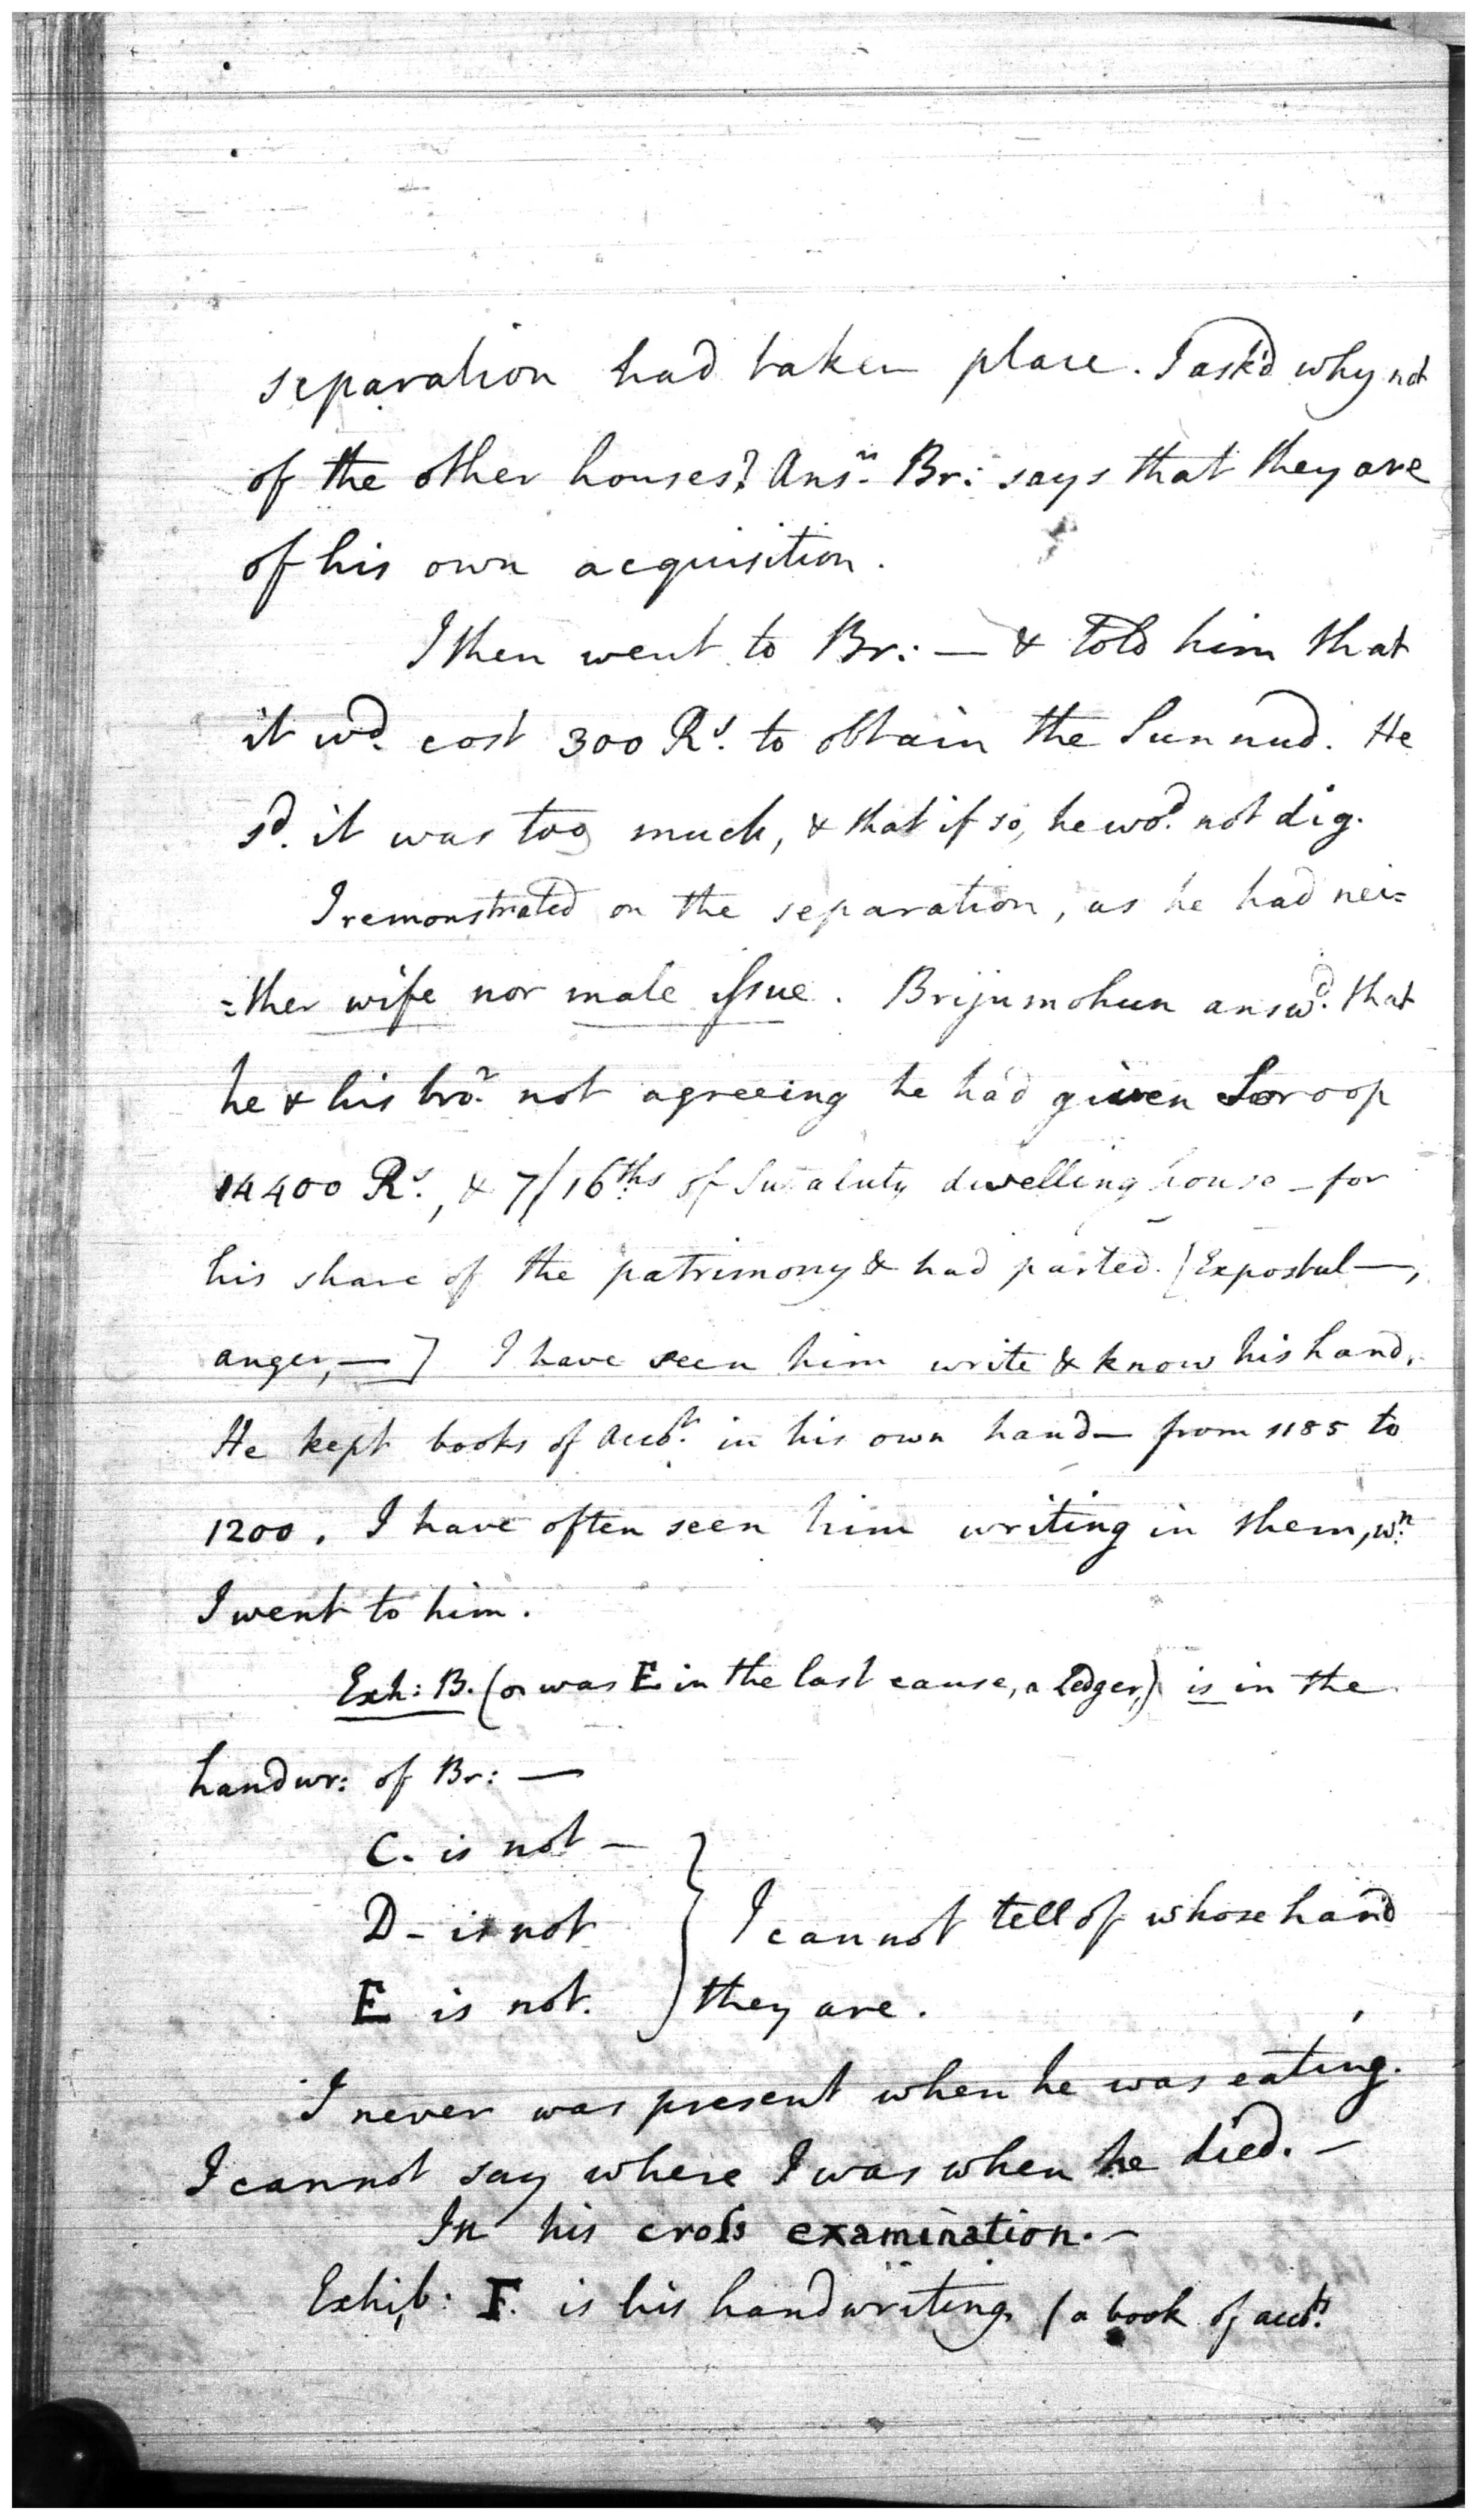 separation had taken place. I ask'd why not
of the other houses? Ansr. Br: says that they are
of his own acquisition.
I then went to Br: — & told him that
it wd. cost 300 Rs. to obtain the Sunnud. He
sd. it was too much, & that if so, he wod. not dig.
I remonstrated on the separation, as he had nei=
=ther wife nor male issue. Brijumohun answd. that
he & his bror. not agreeing he had given Soroop
14400 Rs., & 7/16ths. of Sutaluty dwelling house — for
his share of the patrimony & had parted. [Expostul—,
anger, —] I have seen him write & know his hand.
He kept books of accots. in his own hand — from 1185 to
1200. I have often seen him writing in them, wn.
I went to him.
Exh: B. (or was E in the last cause, a Ledger,) is in the
handwr: of Br: —
C. is not —
D — is not } I cannot tell of whose hand
E is not. they are.
I never was present when he was eating.
I cannot say where I was when he died. —
In his cross examination. —
Exhib: F. is his handwriting (a book of accots.